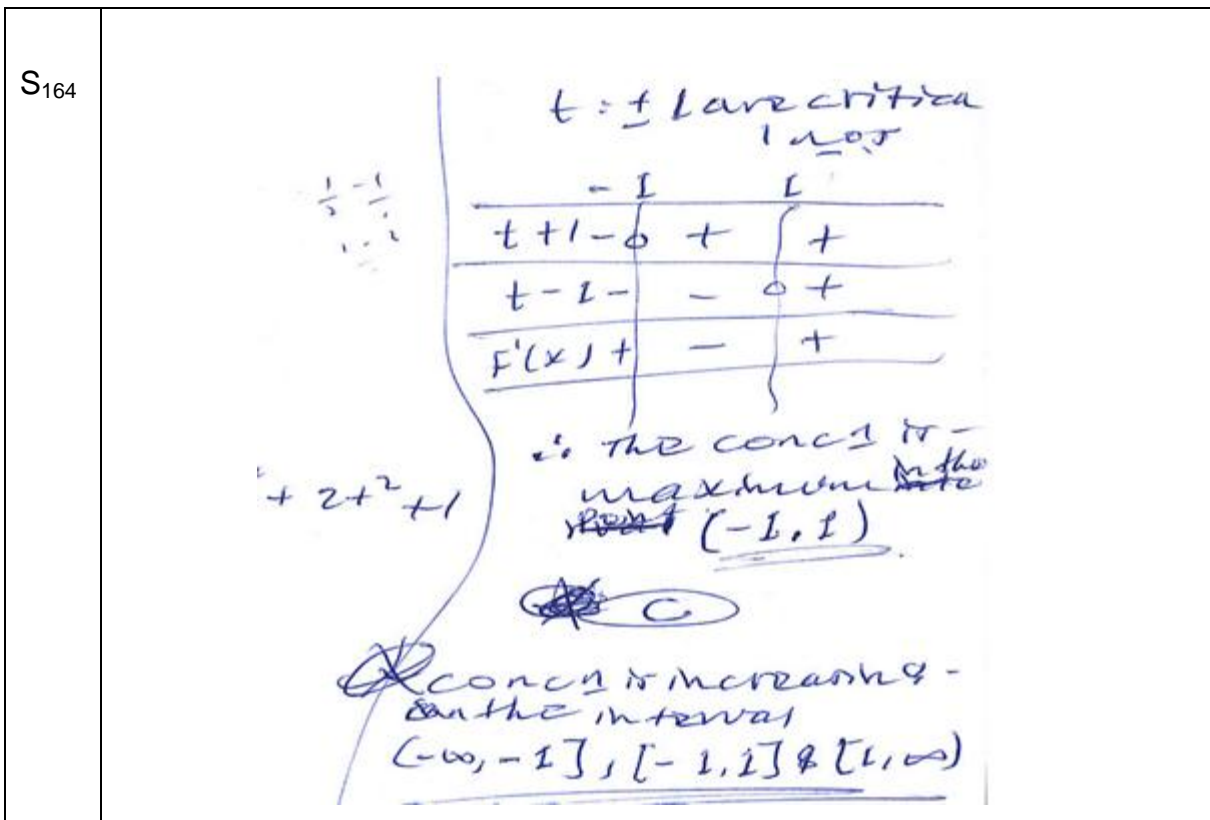 S164
t = ± 1 are critica
l nos
-1 1
t+1 - 0 + +
t-1 - - 0 +
F'(x) + - +
∴ The concn is -
maximum in the
point (-1, 1)
+ 2t² + 1
C
concn is increasing -
on the interval
(-∞, -1], [-1, 1] & [1, ∞)